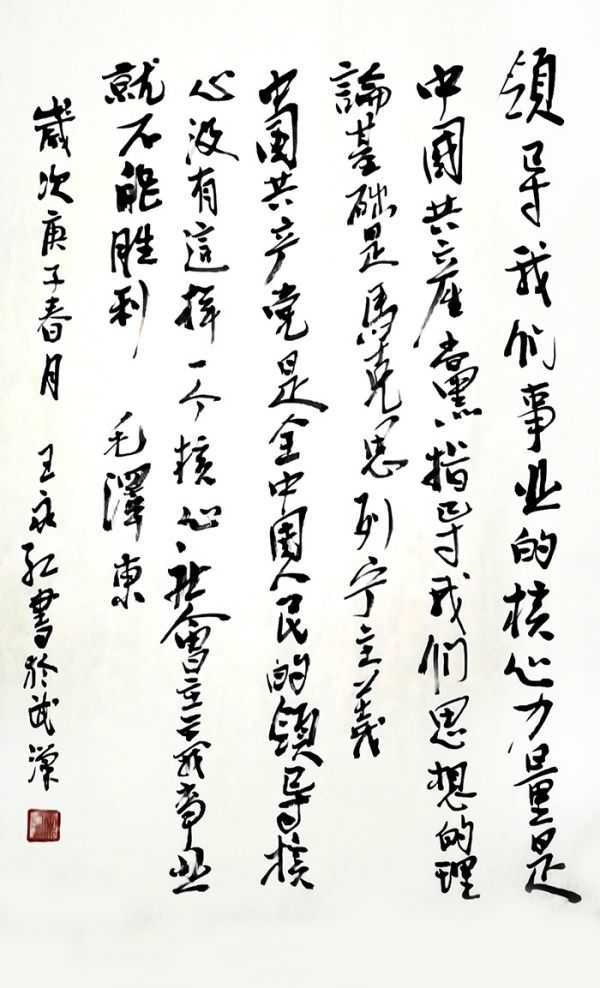 領导我们事业的核心力量是
中國共產黨指导我们思想的理
論基础是馬克思列宁主義
中國共产党是全中國人民的領导核
心没有這样一个核心社會主義事业
就不能胜利 毛澤東
歲次庚子春月 王永红書於武漢